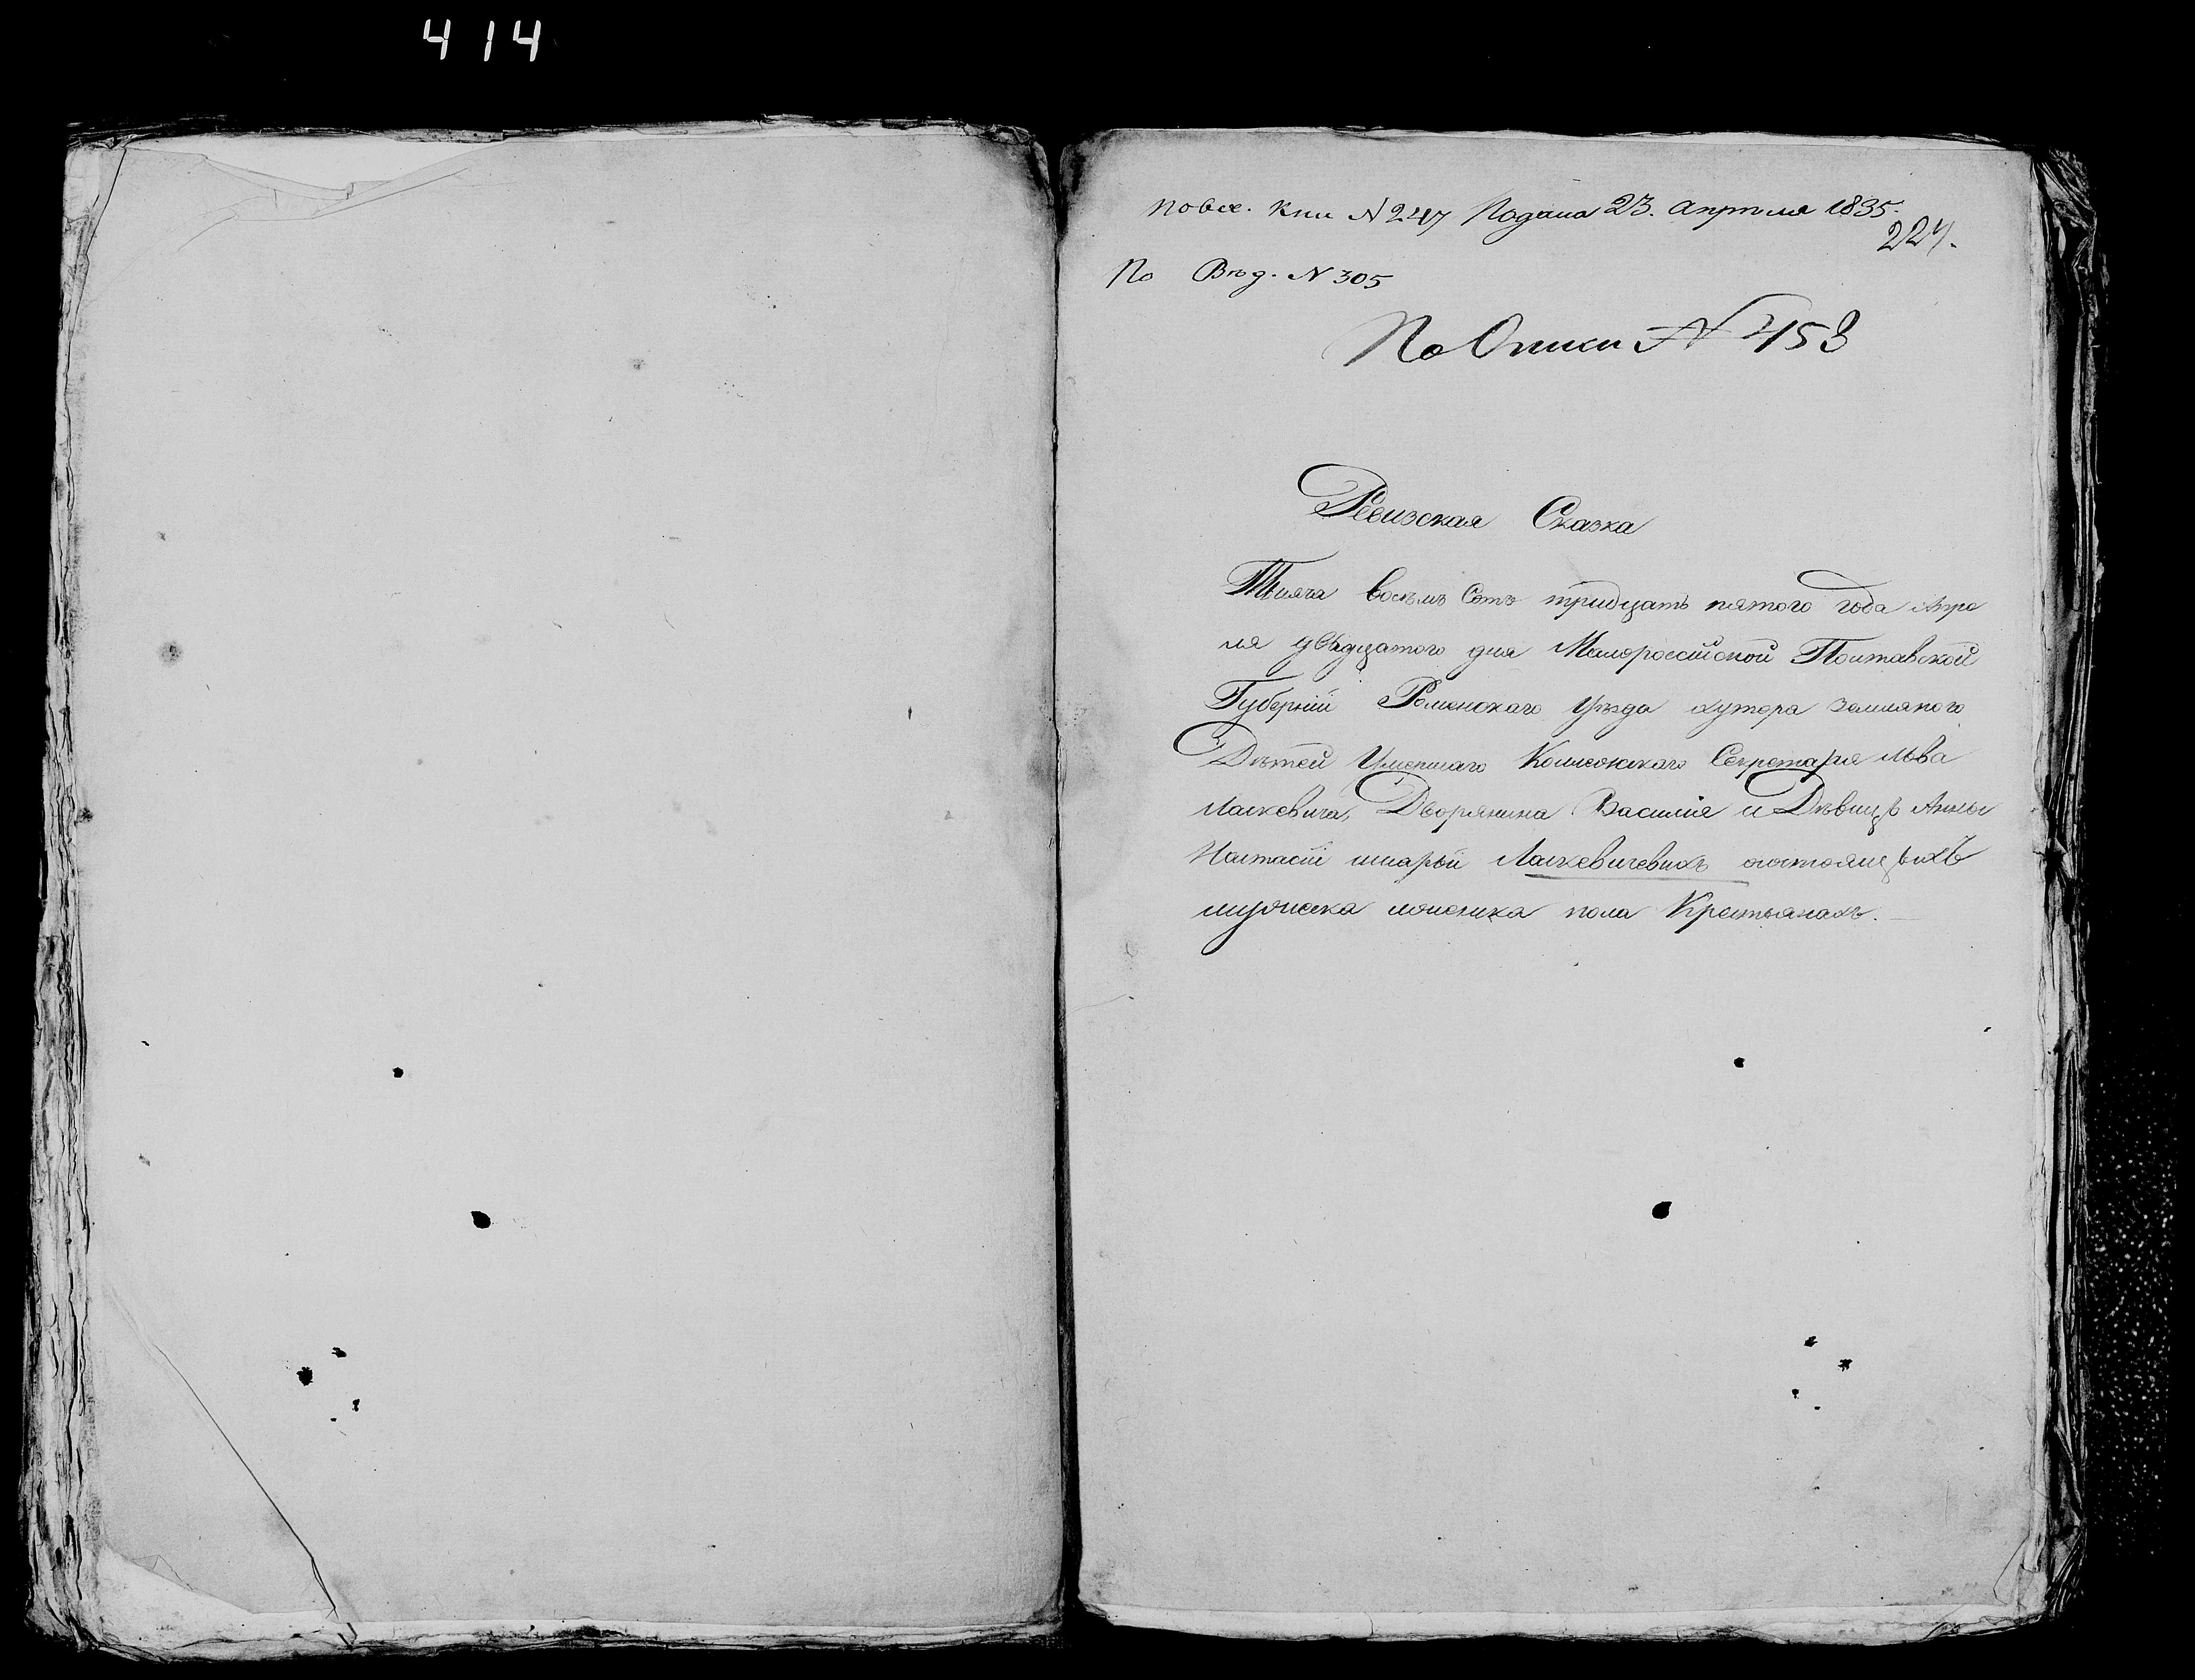 414
По вх. Кни N 247 Подана 23. Апреля 1835.
224.
По Вѣд. N 305
По Описи N 453
Ревизская Сказка
Тысяча восемъ Сотъ тридцать пятого года Апре
ля двадцатого дня Малороссійской Полтавской
Губерніи Роменского Уезда хутора Земляного
Дѣтей Умершаго Колежского Секретаря Льва
Ласкевича, Дворянина Василія и Дѣвицъ Анны
Настасіи имарьи Ласкевичевыхъ состоящихъ
мужеска иженска пола Крестьянахъ.